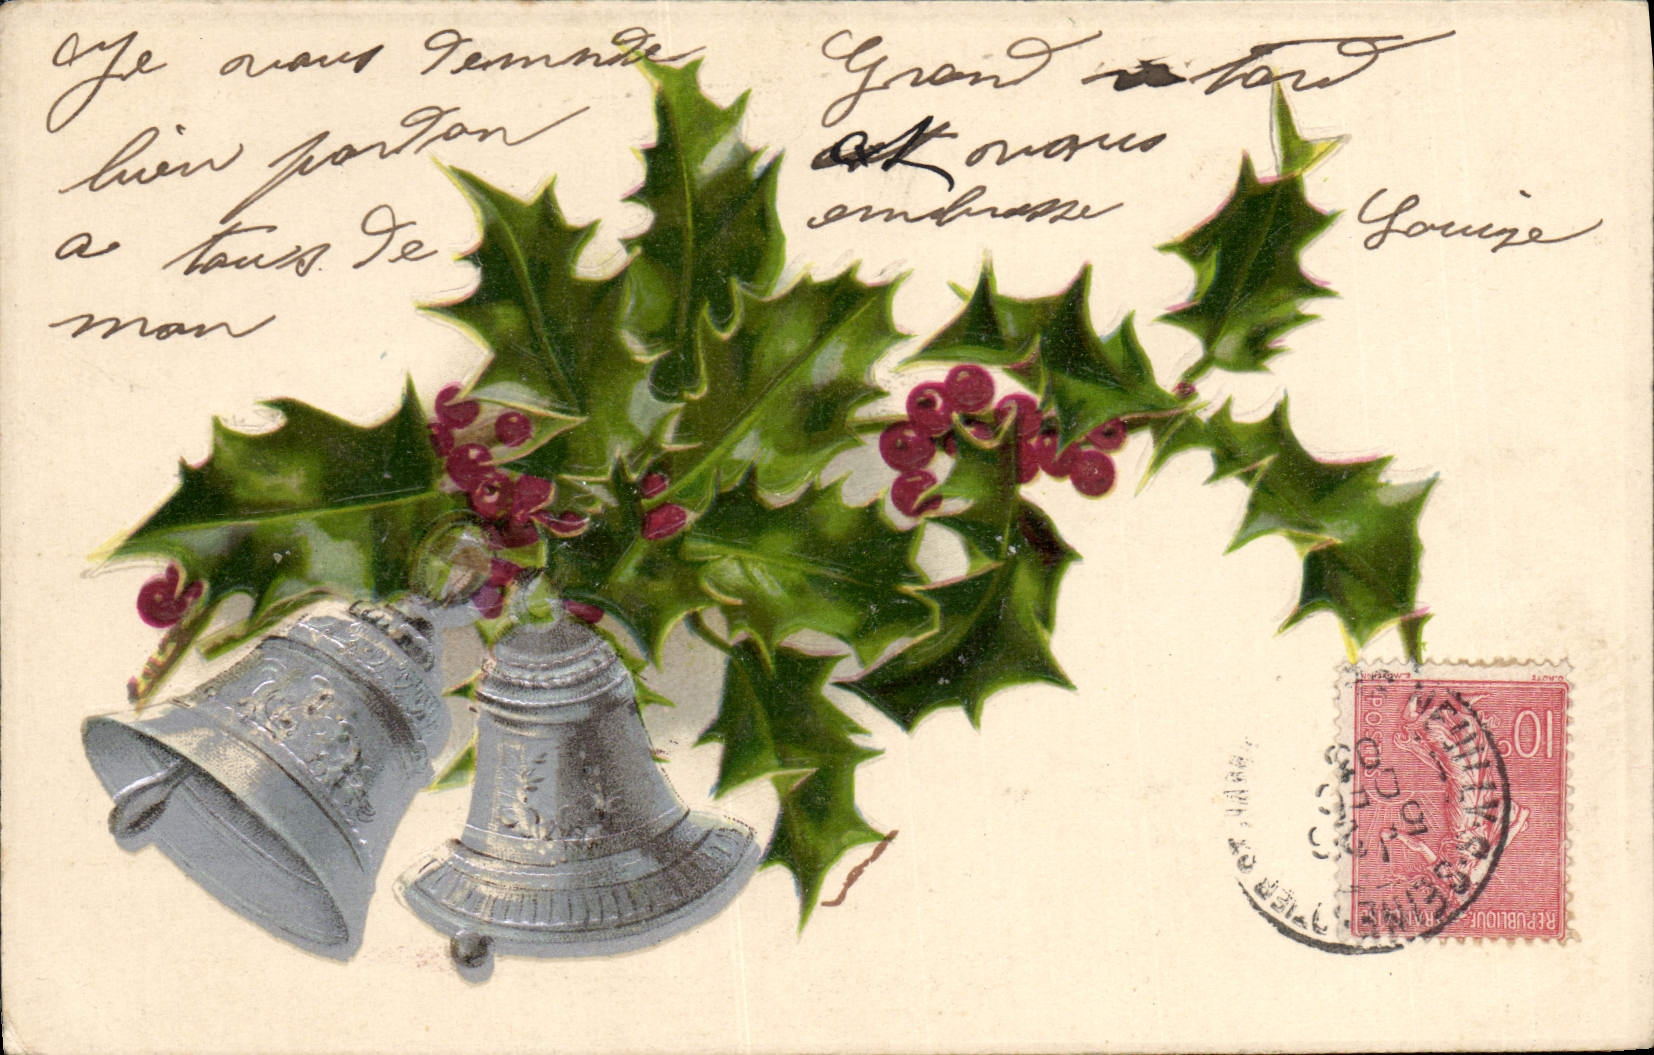 Je vous demande
bien pardon
a tous de
mon
Grand retard
et vous
embrasse
Louise
10c
POSTES
REPUBLIQUE FRANCAISE
NEUILLY-S-SEINE